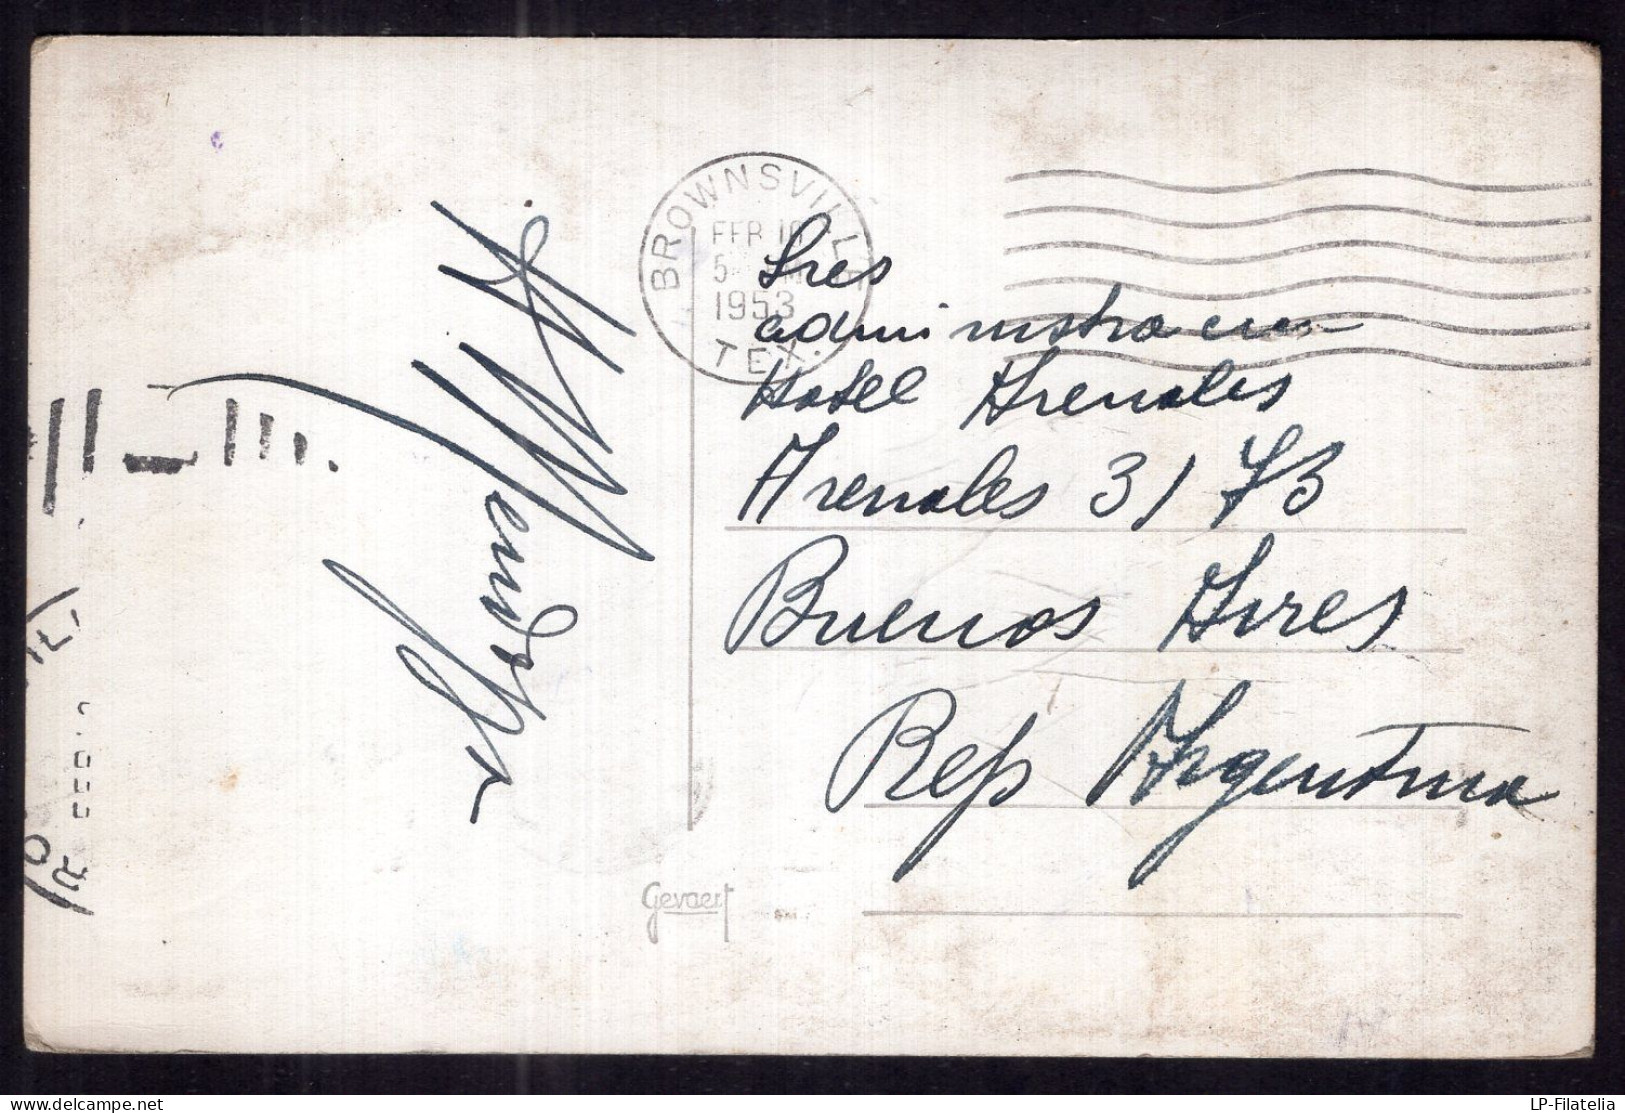 BROWNSVILLE
FEB 10
5
1953
TEX.
Sres
administracion
Hotel Arenales
Arenales 3173
Buenos Aires
Rep Argentina
Gevaert
LP-Filatelia